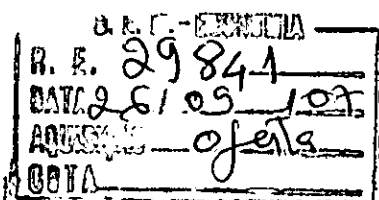 R. E. 29841
DATA 26 / 09 / 07
AQUISIÇÃO oferta
COTA